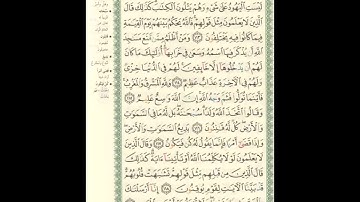 لَيْسَتِ ٱلْيَهُودُ عَلَىٰ شَىْءٍ وَهُمْ يَتْلُونَ ٱلْكِتَٰبَ كَذَٰلِكَ قَالَ
ٱلَّذِينَ لَا يَعْلَمُونَ مِثْلَ قَوْلِهِمْ فَٱللَّهُ يَحْكُمُ بَيْنَهُمْ يَوْمَ ٱلْقِيَٰمَةِ
فِيمَا كَانُوا۟ فِيهِ يَخْتَلِفُونَ ١١٣ وَمَنْ أَظْلَمُ مِمَّن مَّنَعَ مَسَٰجِدَ
ٱللَّهِ أَن يُذْكَرَ فِيهَا ٱسْمُهُۥ وَسَعَىٰ فِى خَرَابِهَآ أُو۟لَٰٓئِكَ مَا كَانَ
لَهُمْ أَن يَدْخُلُوهَآ إِلَّا خَآئِفِينَ لَهُمْ فِى ٱلدُّنْيَا خِزْىٌ
وَلَهُمْ فِى ٱلْءَاخِرَةِ عَذَابٌ عَظِيمٌ ١١٤ وَلِلَّهِ ٱلْمَشْرِقُ وَٱلْمَغْرِبُ
فَأَيْنَمَا تُوَلُّوا۟ فَثَمَّ وَجْهُ ٱللَّهِ إِنَّ ٱللَّهَ وَٰسِعٌ عَلِيمٌ ١١٥
وَقَالُوا۟ ٱتَّخَذَ ٱللَّهُ وَلَدًا سُبْحَٰنَهُۥ بَل لَّهُۥ مَا فِى ٱلسَّمَٰوَٰتِ
وَٱلْأَرْضِ كُلٌّ لَّهُۥ قَٰنِتُونَ ١١٦ بَدِيعُ ٱلسَّمَٰوَٰتِ وَٱلْأَرْضِ
وَإِذَا قَضَىٰٓ أَمْرًا فَإِنَّمَا يَقُولُ لَهُۥ كُن فَيَكُونُ ١١٧ وَقَالَ ٱلَّذِينَ
لَا يَعْلَمُونَ لَوْلَا يُكَلِّمُنَا ٱللَّهُ أَوْ تَأْتِينَآ ءَايَةٌ كَذَٰلِكَ
قَالَ ٱلَّذِينَ مِن قَبْلِهِم مِّثْلَ قَوْلِهِمْ تَشَٰبَهَتْ قُلُوبُهُمْ
قَدْ بَيَّنَّا ٱلْءَايَٰتِ لِقَوْمٍ يُوقِنُونَ ١١٨ إِنَّآ أَرْسَلْنَٰكَ